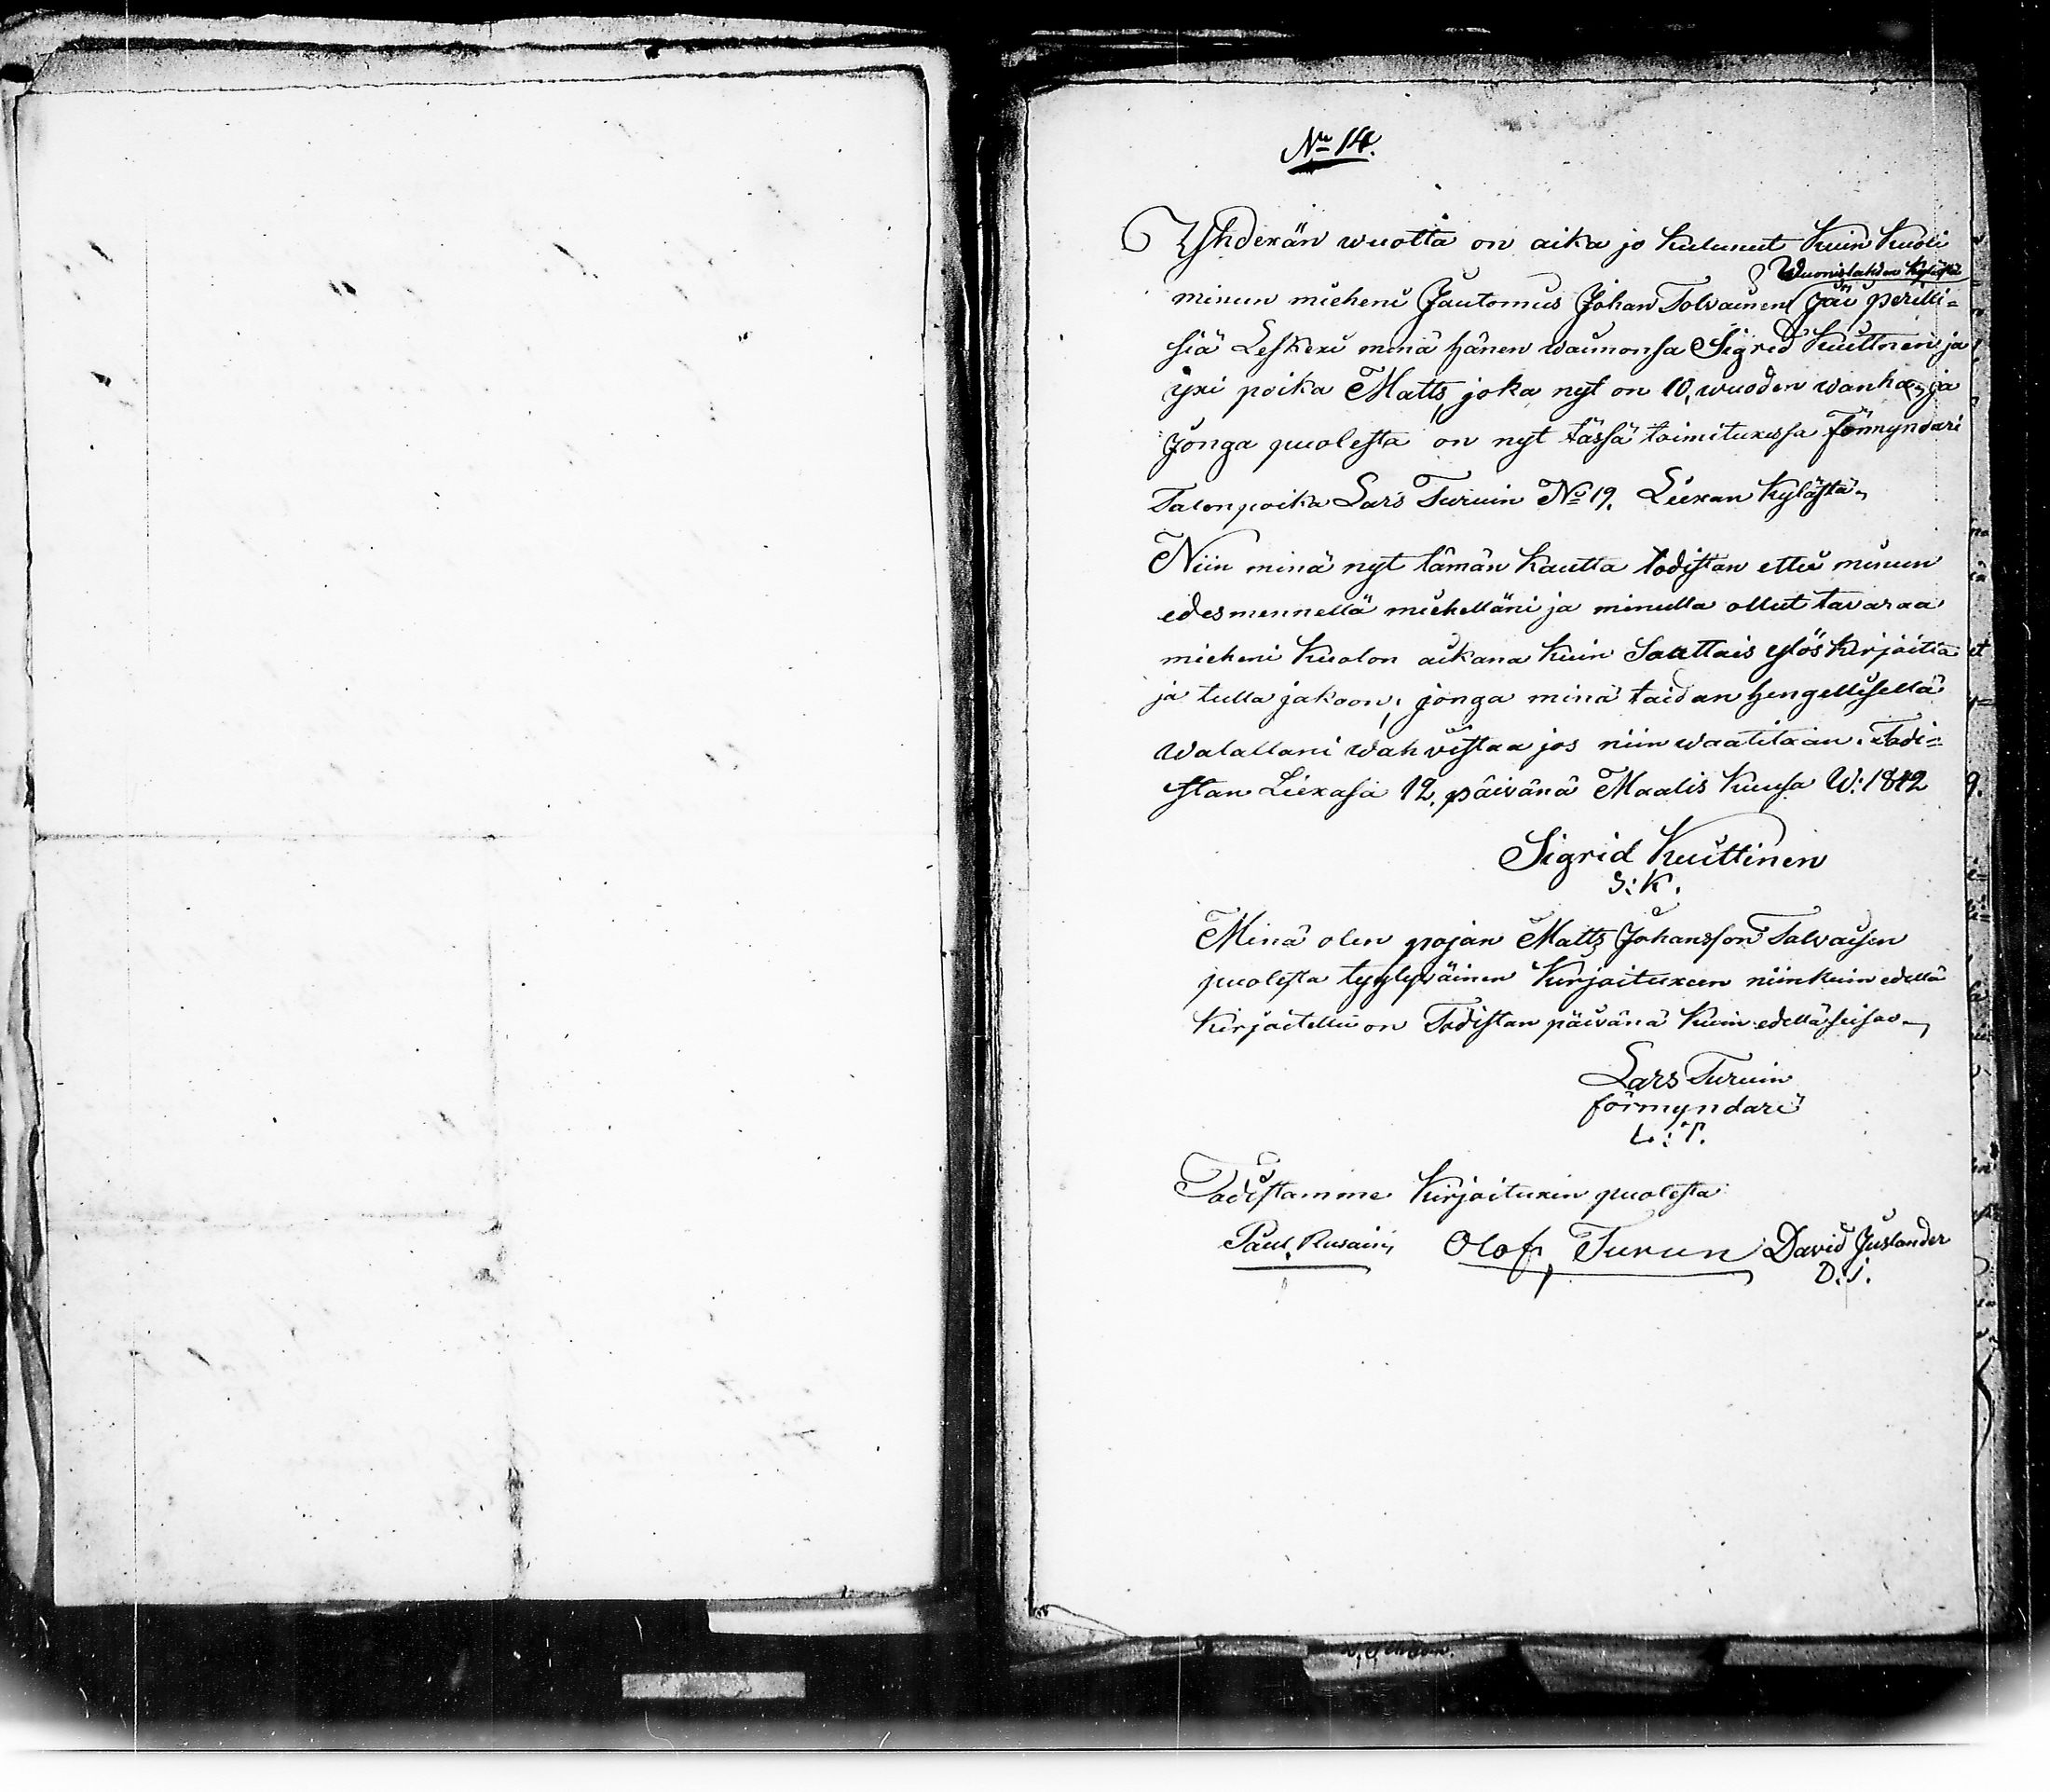 No 14.
Yhdexän wuotta on aika jo kulunut kuin kuoli
Wuonislahden kylästä
minun mieheni Jautomus Johan Tolvainen Jäi perilli=
siä Leskexi minä hänen waimonsa Sigrid Kuittinen ja
yxi poika Matts, joka nyt on 10, wuoden wanha, ja
Jonga puolesta on nyt tässä toimituxessa Förmyndari
Talonpoika Lars Turuin No 19. Liexan kylästä,
Niin minä nyt tämän kautta todistan että minun
edesmennellä miehelläni ja minulla ollut tavaraa
mieheni kuolon aikana kuin Sauttais ylös kirjoitta
ja tulla jakoon, jonga minä taidan hengellisellä
walallani wahvistaa jos niin waatitaan. Todi=
stan Liexasa 12. päivänä Maalis kuusa W: 1842
Sigrid Kuittinen
S: K.
Minä olen pojan Matts Johansson Tolvaisen
puolesta tyytyväinen kirjoituxeen niinkuin edellä
kirjoitettu on Todistan päivänä kuin edellä seisoo,
Lars Turuin
förmyndari
L: T.
Todistamme kirjoituxin puolesta
Paul Rusain, Olof Turun David Juslander
D. J.